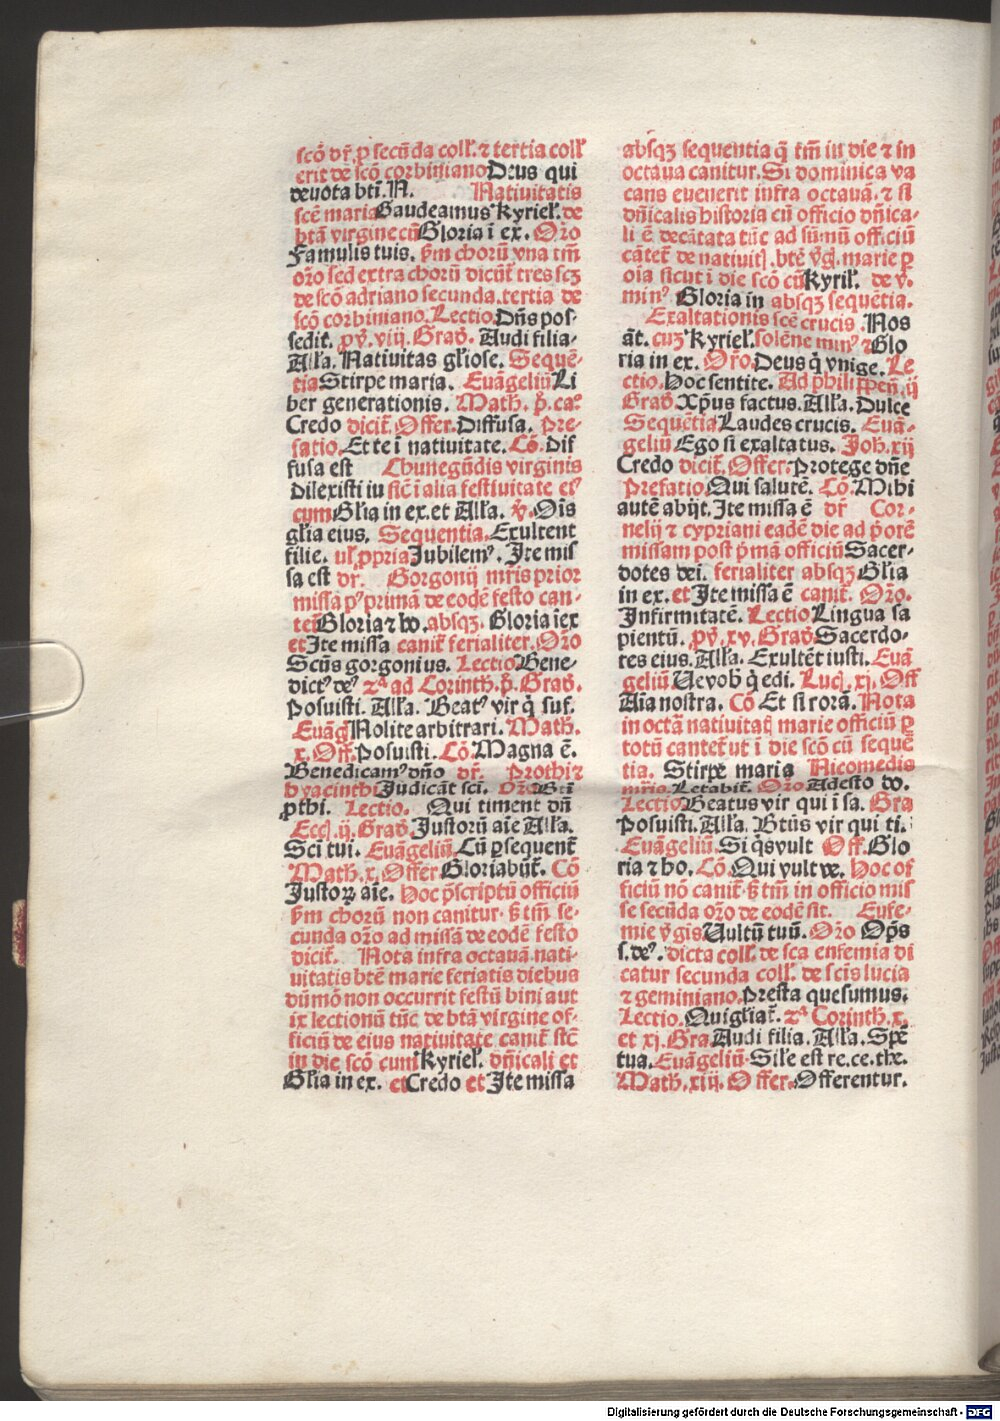 scō dr̄. p secūda coll'. ⁊ tertia coll'
erit de scō corbiniano Deus qui
deuota bti. N. Natiuitatis
scē marie Gaudeamus Kyriel'. de
btā virgine cū Gloria ī ex. Oro
Famulis tuis. p̄m chorū vna tm̄
oro sed extra chorū dicūt tres scȝ
de scō adriano secunda. tertia de
scō corbiniano. Lectio. Dn̄s pos-
sedit. pv̄. viij. Grad̄. Audi filia.
Alla. Natiuitas gl'iose. Sequē-
tia Stirpe maria. Euāgeliū Li
ber generationis. Math. p̄. ca°
Credo dicit̄. Offer. Diffusa. pre-
fatio. Et te ī natiuitate. Cō. Dif
fusa est Chunegūdis virginis
Dilexisti iu sic̄ ī alia festiuitate ei⁹
cum Gl'ia in ex. et Alla. v̄. Oīs
gl'ia eius. Sequentia. Exultent
filie. ul' ppria Jubilem⁹. Ite mis
sa est dr̄. Gorgonij mr̄is prior
missa p⁹ primā de eodē festo can-
tet̄ Gloria ⁊ ho. absqȝ. Gloria ī ex
et Ite missa canit̄ ferialiter. Oro
Scūs gorgonius. Lectio Bene-
dict⁹ de⁹ 2ᵃ ad Corinth. p̄. Grad̄.
Posuisti. Alla. Beat⁹ vir q̄ suf.
Euāḡ Nolite arbitrari. Math.
x. Off. Posuisti. Cō. Magna ē.
Benedicam⁹ dn̄o dr̄. Prothi ⁊
hyacinthi Judicāt sci. Oro Bti
pthi. Lectio. Qui timent dn̄
Eccl. ij. Grad̄. Justorū aīe Alla.
Sci tui. Euāgeliū. Cū psequent̄
Math. x. Offer Gloriabūt̄. Cō
Justoꝝ aīe. Hoc p̄scriptū officiū
p̄m chorū non canitur. s̄ tm̄ se-
cunda oro ad missā de eodē festo
dicit̄. Nota infra octauā nati-
uitatis btē marie feriatis diebus
dūmō non occurrit festū bini aut
ix lectionū tūc de btā virgine of-
ficiū de eius natiuitate canit̄ sic̄
in die scō cum Kyriel'. dn̄icali et
Gl'ia in ex. et Credo et Ite missa
absqȝ sequentia q̄ tm̄ in die ⁊ in
octaua canitur. Si dominica va
cans euenerit infra octauā. ⁊ si
dn̄icalis historia cū officio dn̄ica-
li ē decātata tūc ad sūmū officiū
cātet̄ de natiuit. btē v̄g. marie p
oīa sicut ī die scō cū Kyril'. de v.
min⁹ Gloria in absqȝ sequētia.
Exaltationis scē crucis. Nos
āt. cuȝ Kyriel'. solēne min⁹ ⁊ Glo
ria in ex. Oro. Deus q̄ vnige. Le
ctio. Hoc sentite. Ad philippen̄. ij
Grad̄ Xp̄us factus. Alla. Dulce
Sequētia Laudes crucis. Euā-
geliū Ego si exaltatus. Joh. xij
Credo dicit̄. Offer. Protege dn̄e
Prefatio. Qui salutē. Cō. Mihi
autē abijt. Ite missa ē dr̄ Cor-
nelij ⁊ cypriani eadē die ad p̄orē
missam post p̄mā officiū Sacer-
dotes dei. ferialiter absqȝ Gl'ia
in ex. et Ite missa ē canit̄. Oro.
Infirmitatē. Lectio Lingua sa
pientū. pv̄. xv. Grad̄ Sacerdo-
tes eius. Alla. Exultēt iusti. Euā
geliū Ue vob q̄ edi. Luc. xj. Off
Aīa nostra. Cō Et si corā. Nota
in octā natiuitat marie officiū p
totū cantet̄ ut ī die scō cū sequē
tia. Stirpe maria Nicomedis
mr̄is. Letabit̄. Oro Adesto do.
Lectio Beatus vir qui ī sa. Gra
Posuisti. Alla. Btūs vir qui ti.
Euāgeliū. Si q̄s vult Off. Glo
ria ⁊ ho. Cō. Qui vult ve. Hoc of
ficiū nō canit̄. s̄ tm̄ in officio mis
se secūda oro de eodē sit. Eufe-
mie v̄gis Uultū tuū. Oro Op̄s
s. de⁹. dicta coll'. de sca eufemia di
catur secunda coll'. de scīs lucia
⁊ geminiano. Presta quesumus.
Lectio. Qui gl'iat̄. 2ᵃ Corinth. x.
et xj. Gra. Audi filia. Alla. Spē
tua. Euāgeliū Sil'e est re. ce. the.
Math. xiij. Offer. Offerentur.
Digitalisierung gefördert durch die Deutsche Forschungsgemeinschaft - DFG